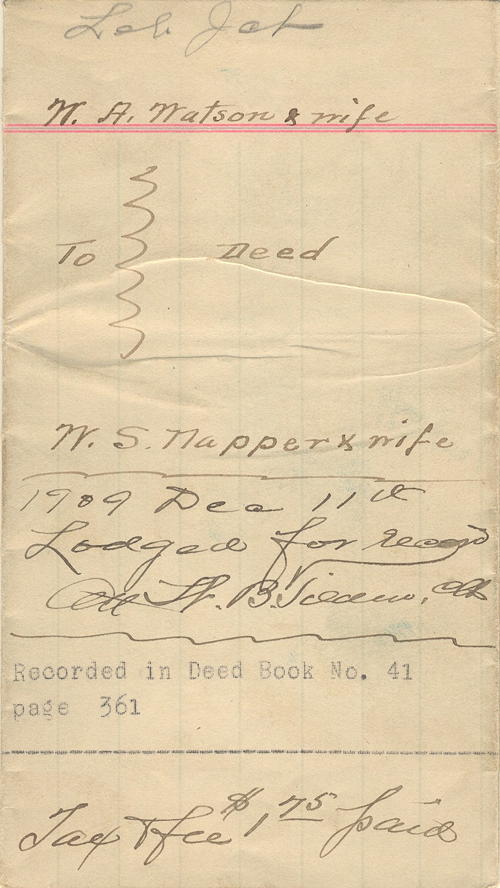 W. A. Watson & wife
To Deed
W. S. Napper & wife
1909 Dec 11th
Lodged for record
Att W. B.
Recorded in Deed Book No. 41
page 361
Tax & fee $1,75 paid